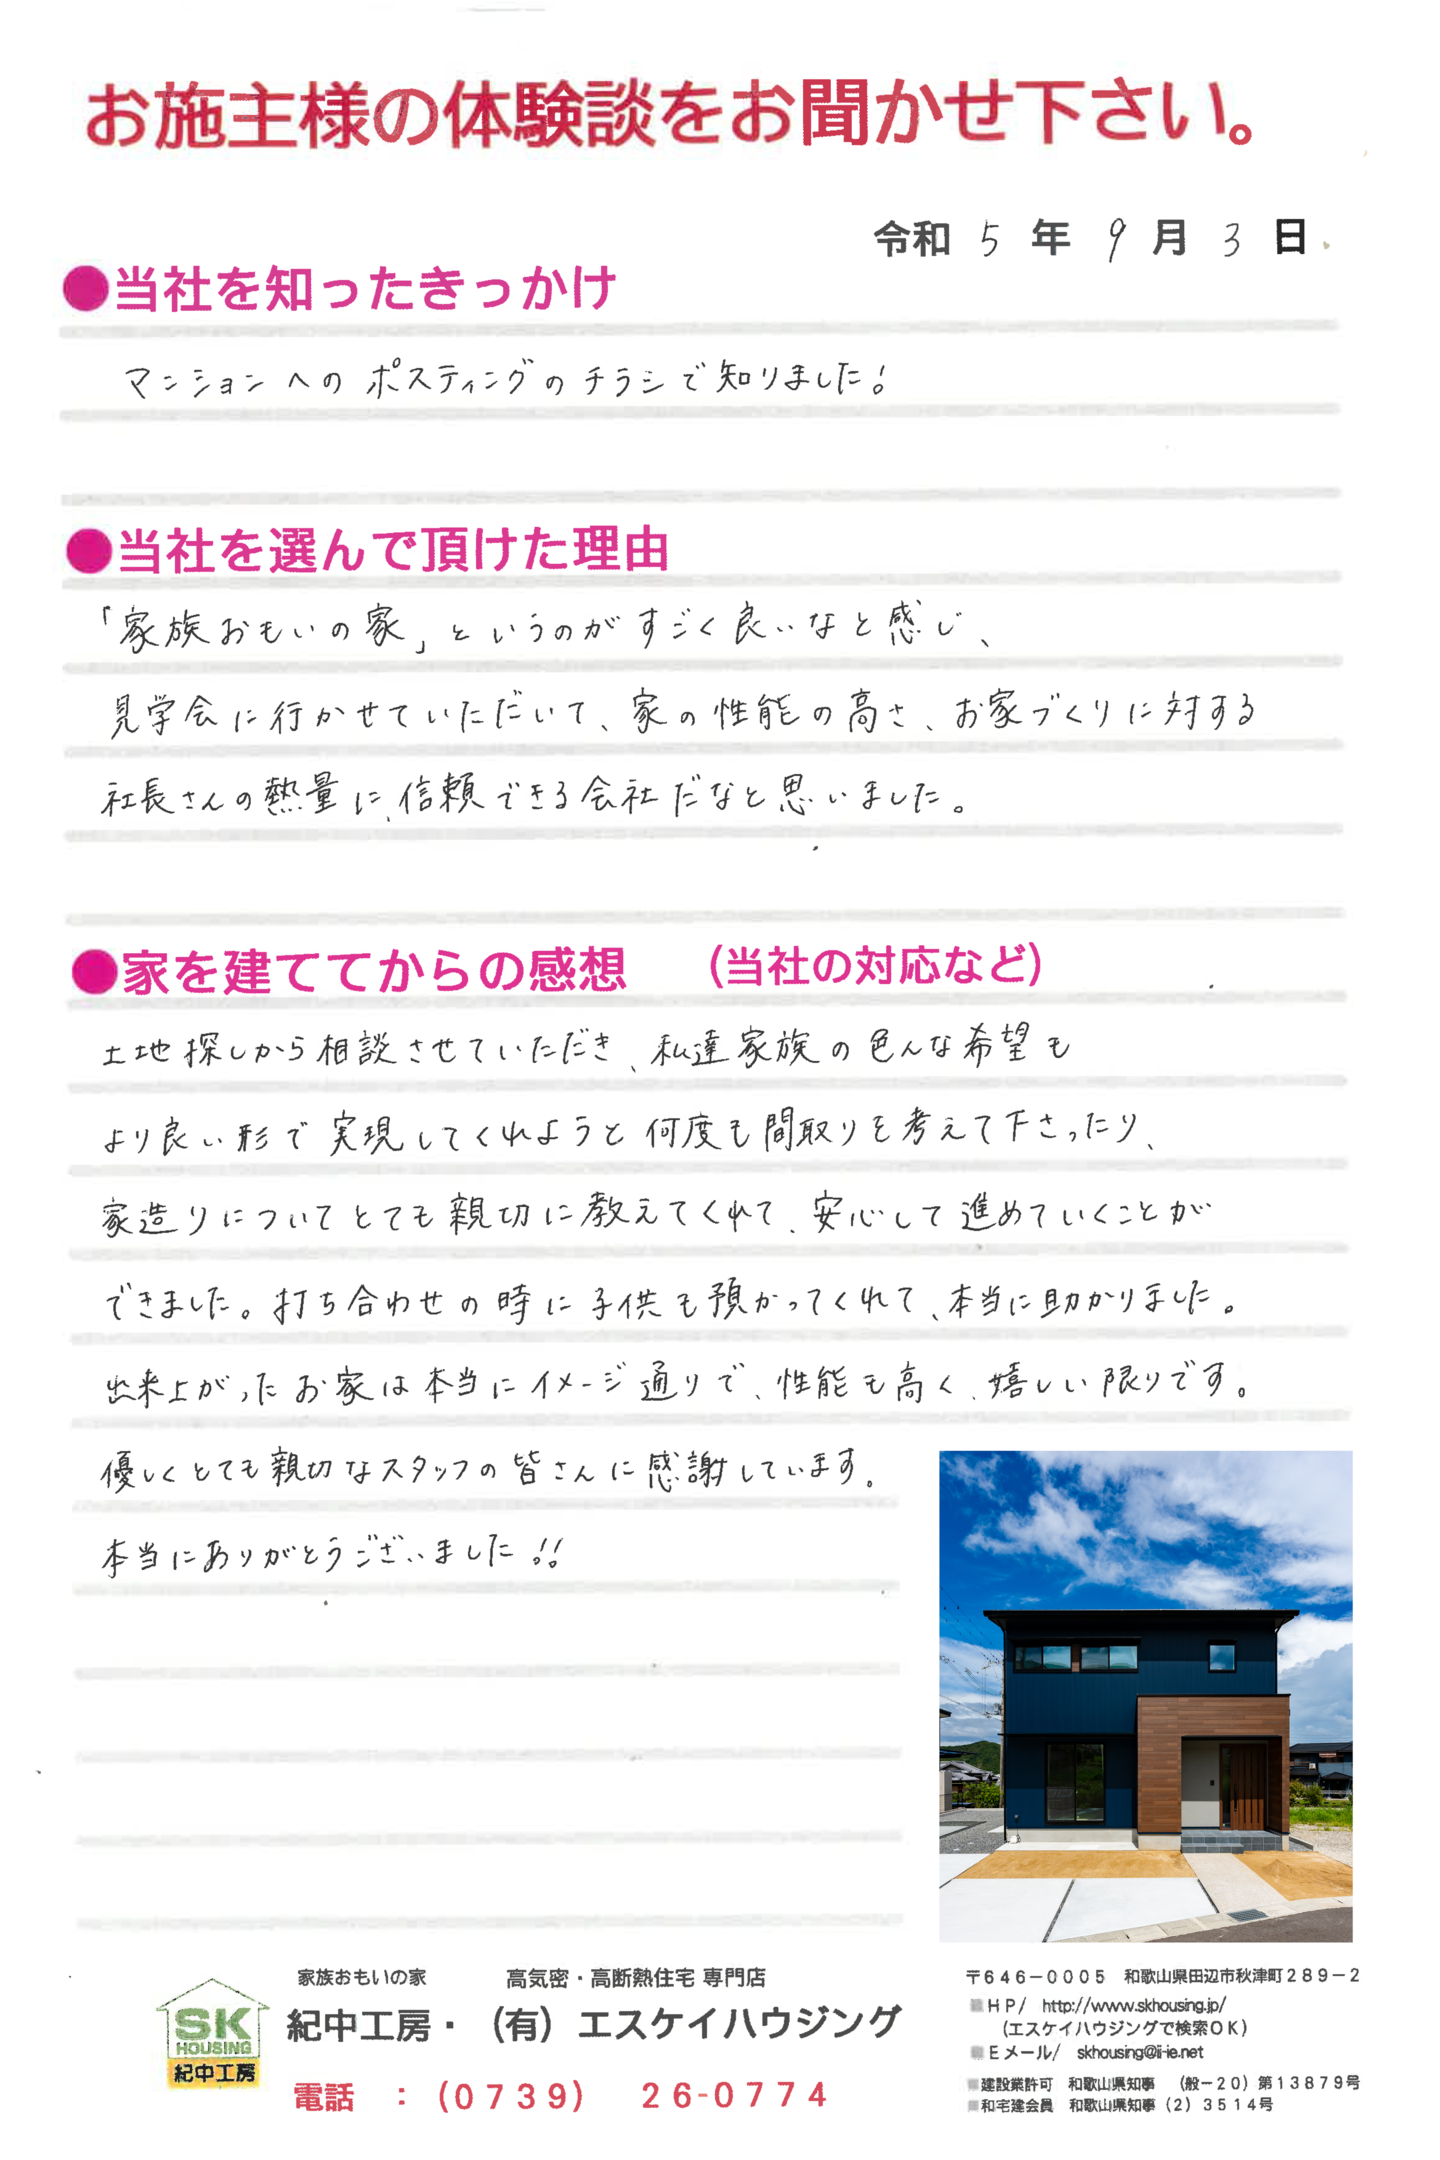 お施主様の体験談をお聞かせ下さい。
令和 5 年 9 月 3 日
●当社を知ったきっかけ
マンションへの ポスティングの チラシで 知りました!
●当社を選んで頂けた理由
「家族おもいの家」というのが すごく良いなと感じ、
見学会に行かせていただいて、家の性能の高さ、お家づくりに対する
社長さんの熱量に、信頼できる会社だなと思いました。
●家を建ててからの感想 (当社の対応など)
土地探しから相談させていただき、私達家族の色んな希望も
より良い形で実現してくれようと何度も間取りを考えて下さったり、
家造りについてとても親切に教えてくれて、安心して進めていくことが
できました。打ち合わせの時に子供も預かってくれて、本当に助かりました。
出来上がったお家は本当にイメージ通りで、性能も高く、嬉しい限りです。
優しくとても親切なスタッフの皆さんに感謝しています。
本当にありがとうございました!!
家族おもいの家 高気密・高断熱住宅 専門店
SK
HOUSING
紀中工房
紀中工房・(有)エスケイハウジング
電話 :(0739) 26-0774
〒646-0005 和歌山県田辺市秋津町289-2
■HP/ http://www.skhousing.jp/
(エスケイハウジングで検索OK)
■Eメール/ skhousing@ii-ie.net
■建設業許可 和歌山県知事 (般-20)第13879号
■和宅建会員 和歌山県知事(2)3514号